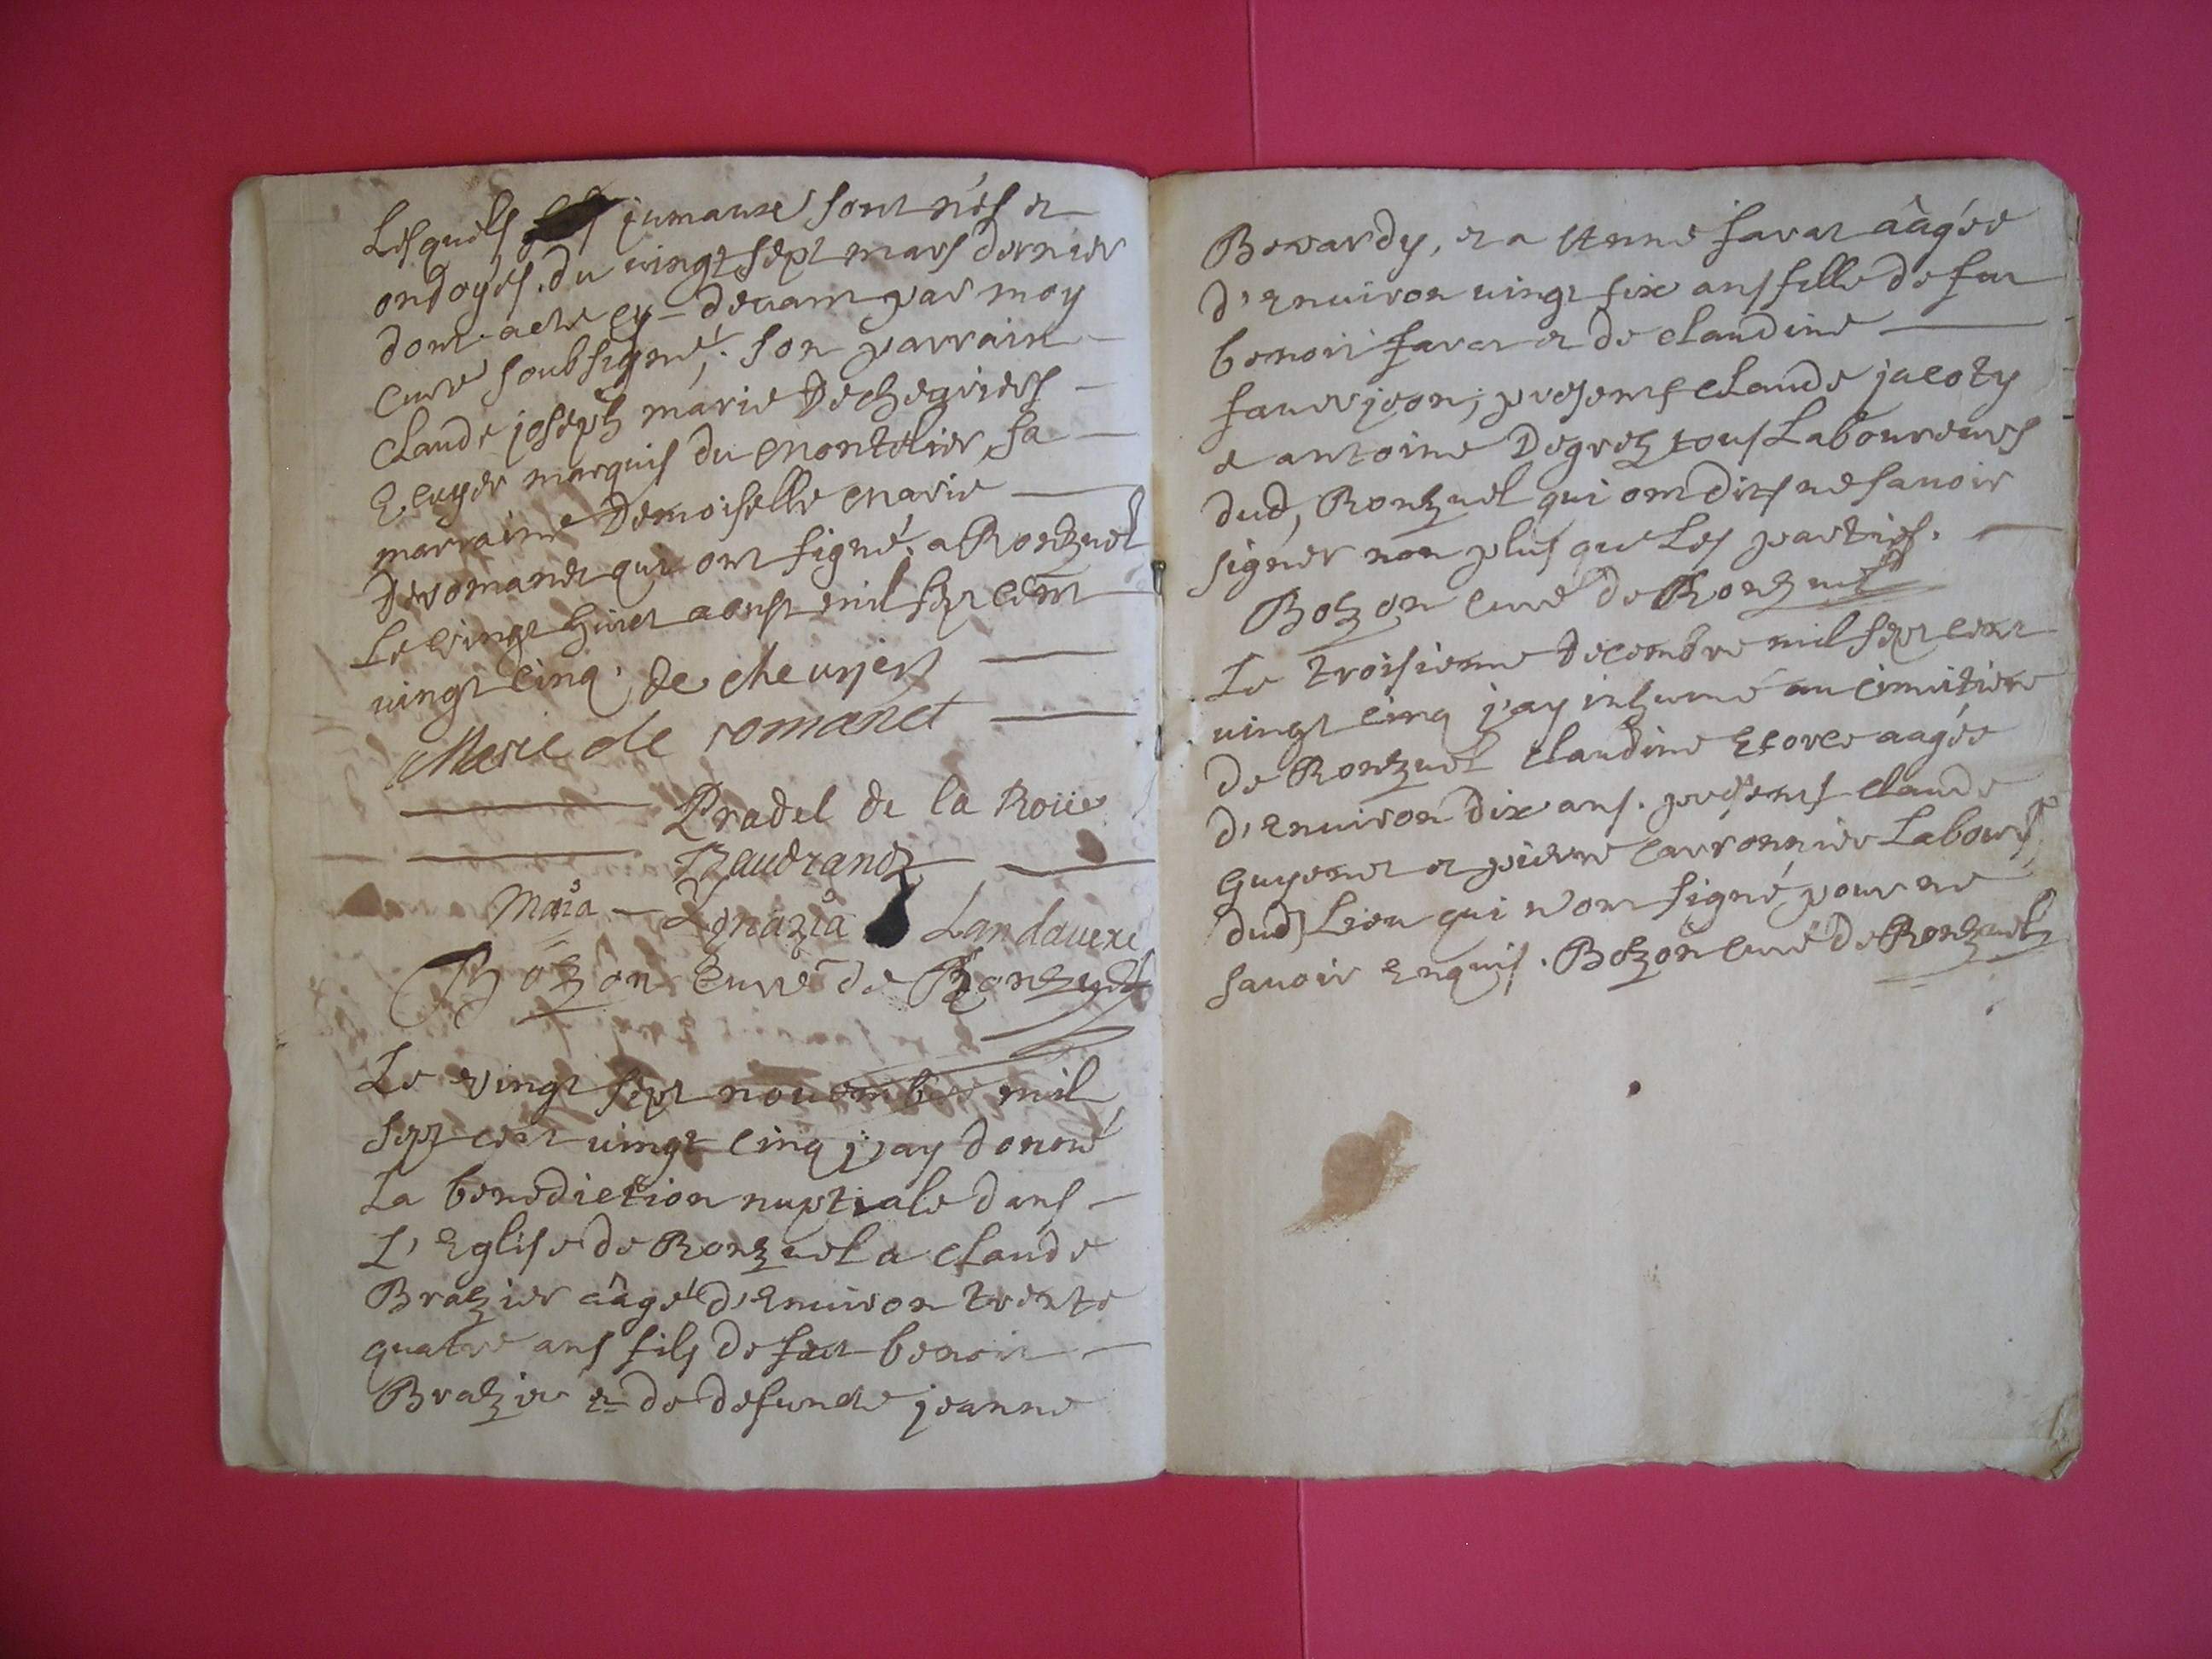 Lesquels jumaux sont nés et
ondoyés du vingt sept mars dernier
dont acte cy devant par moy
curé soubsigné, son parrain
Claude joseph marie De chegriers
Ecuyer marquis du montelier, sa
marraine Demoiselle marie
De romanet qui ont signé, a Ronzuel
Le vingt huict aoust mil sept cent
vingt cinq. de chevrier
Marie de romanet
Pradel de la Roüe
Baudrand
Maria Ignazia Landavere
Bozon curé de Ronzuel
Le vingt sept novembre mil
sept cent vingt cinq j'ay donné
La benediction nuptiale dans
L'Eglise de Ronzuel a claude
Brazier aâgé d'Environ trente
quatre ans fils de feu benoit
Brazier et de defuncte jeanne
Bovardy, et a Anne favat aâgée
d'Environ vingt six ans fille de feu
benoit favat et de claudine
faverjeon; presents claude jacoty
et antoine Degrez tous Laboureurs
dud, Ronzuel qui ont dit ne savoir
signer non plus que Les parties.
Bozon curé de Ronzuel
Le troisieme decembre mil sept cent
vingt cinq j'ay inhumé au cimitiere
de Ronzuel claudine aagée
d'Environ dix ans. presents claude
Guyenet et pierre carronnier Labours
dud, Lieu qui n'ont signé pour ne
savoir Enquis. Bozon curé de Ronzuel